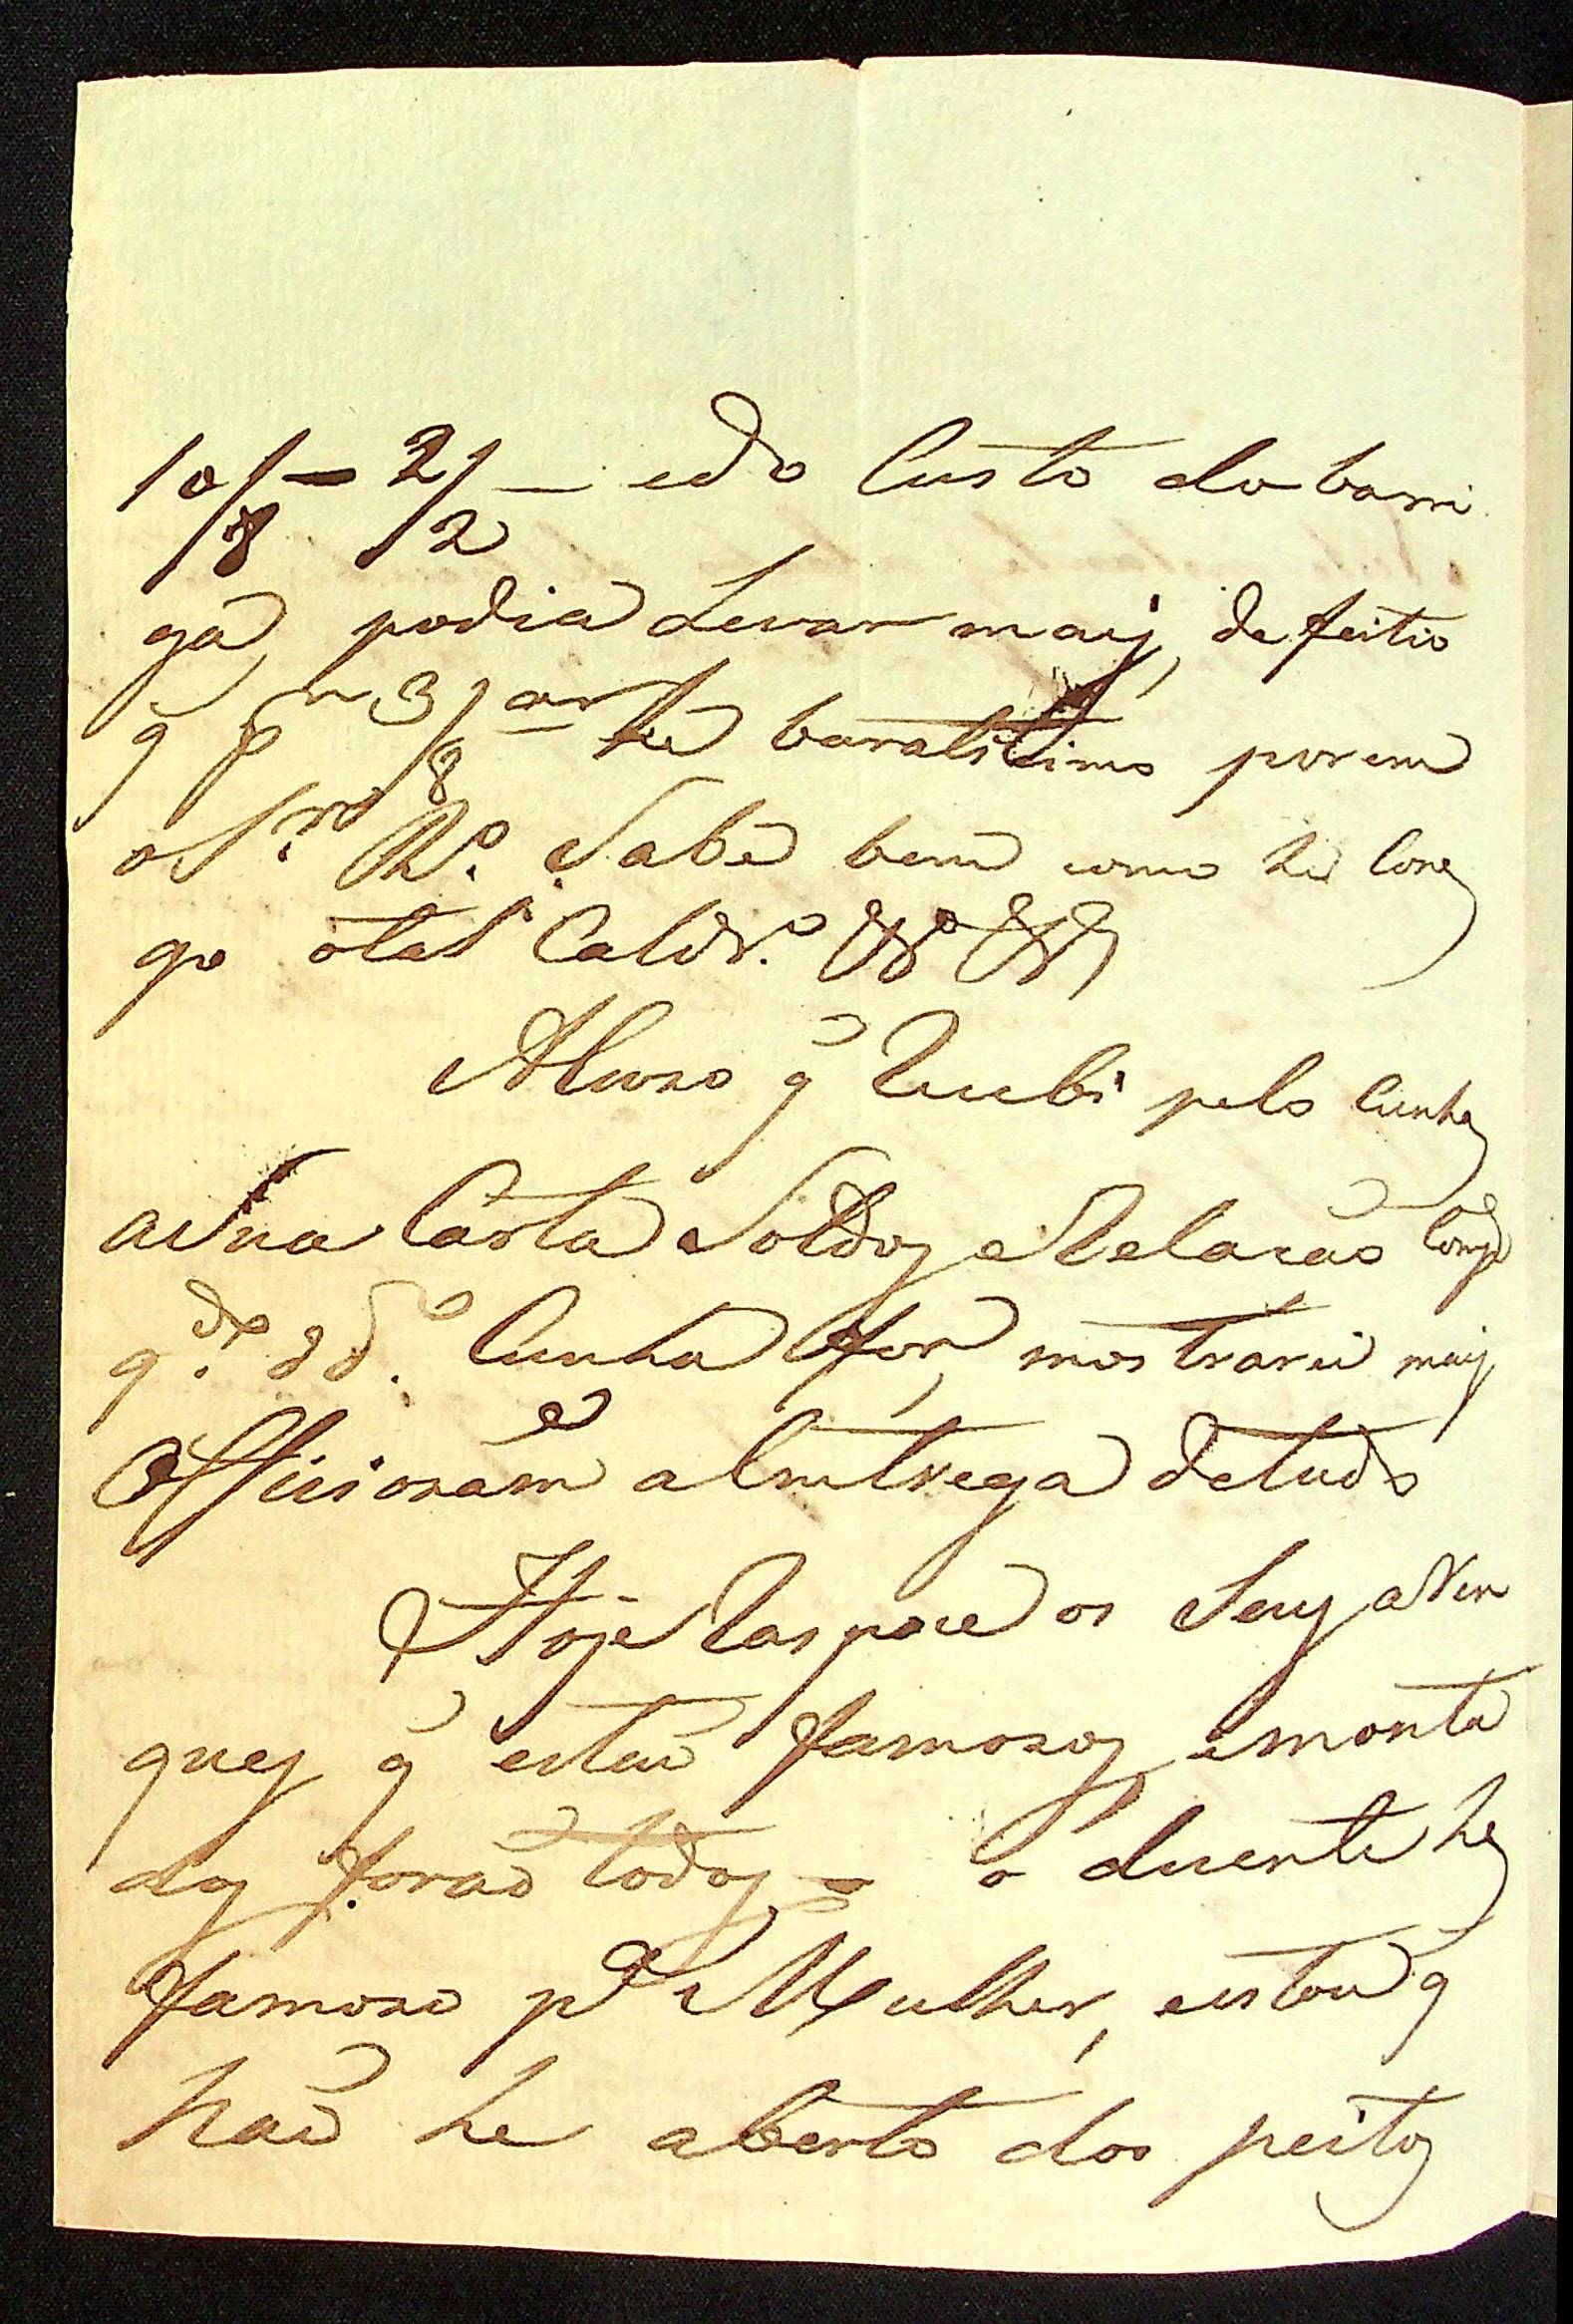 10/8 — 2/2 — edo Custo da barri
ga, podia Levar maiz, de feitio
q̃ p.r 3/8.as he baratissimo porem
o S.r R.o Sabe bem como he Com
go o tal Cald.o
Abuso q̃ Recebi pelo Cunha
a Sua Carta Soldoz e Relacaõ Logo
q.do o d.o Cunha for, mostrarei maiz
Officiosam.e a Entrega de tudo
Hoje Raspace os Seuz aren
quez q̃ estaõ famozoz, e monta
doz foraõ todoz — o duente he
famozo p.a Mulher, e estou q̃
naõ he aberto dos peitoz